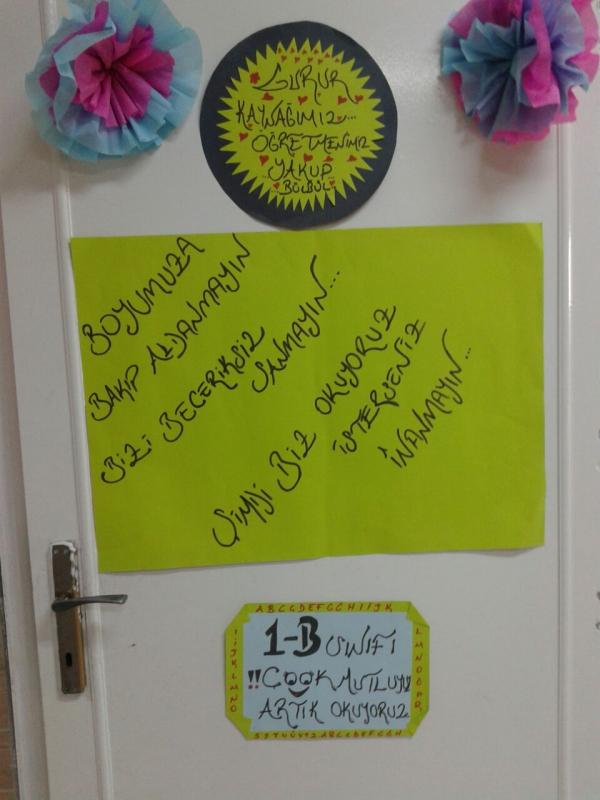 GURUR
KAYNAĞIMIZ...
ÖĞRETMENİMİZ
YAKUP
BÜLBÜL
BOYUMUZA
BAKIP ALDANMAYIN
BİZİ BECERİKSİZ
SANMAYIN...
ŞİMDİ BİZ OKUYORUZ
İSTERSENİZ
İNANMAYIN...
1-B SINIFI
!!ÇOOK MUTLUYUZ
ARTIK OKUYORUZ